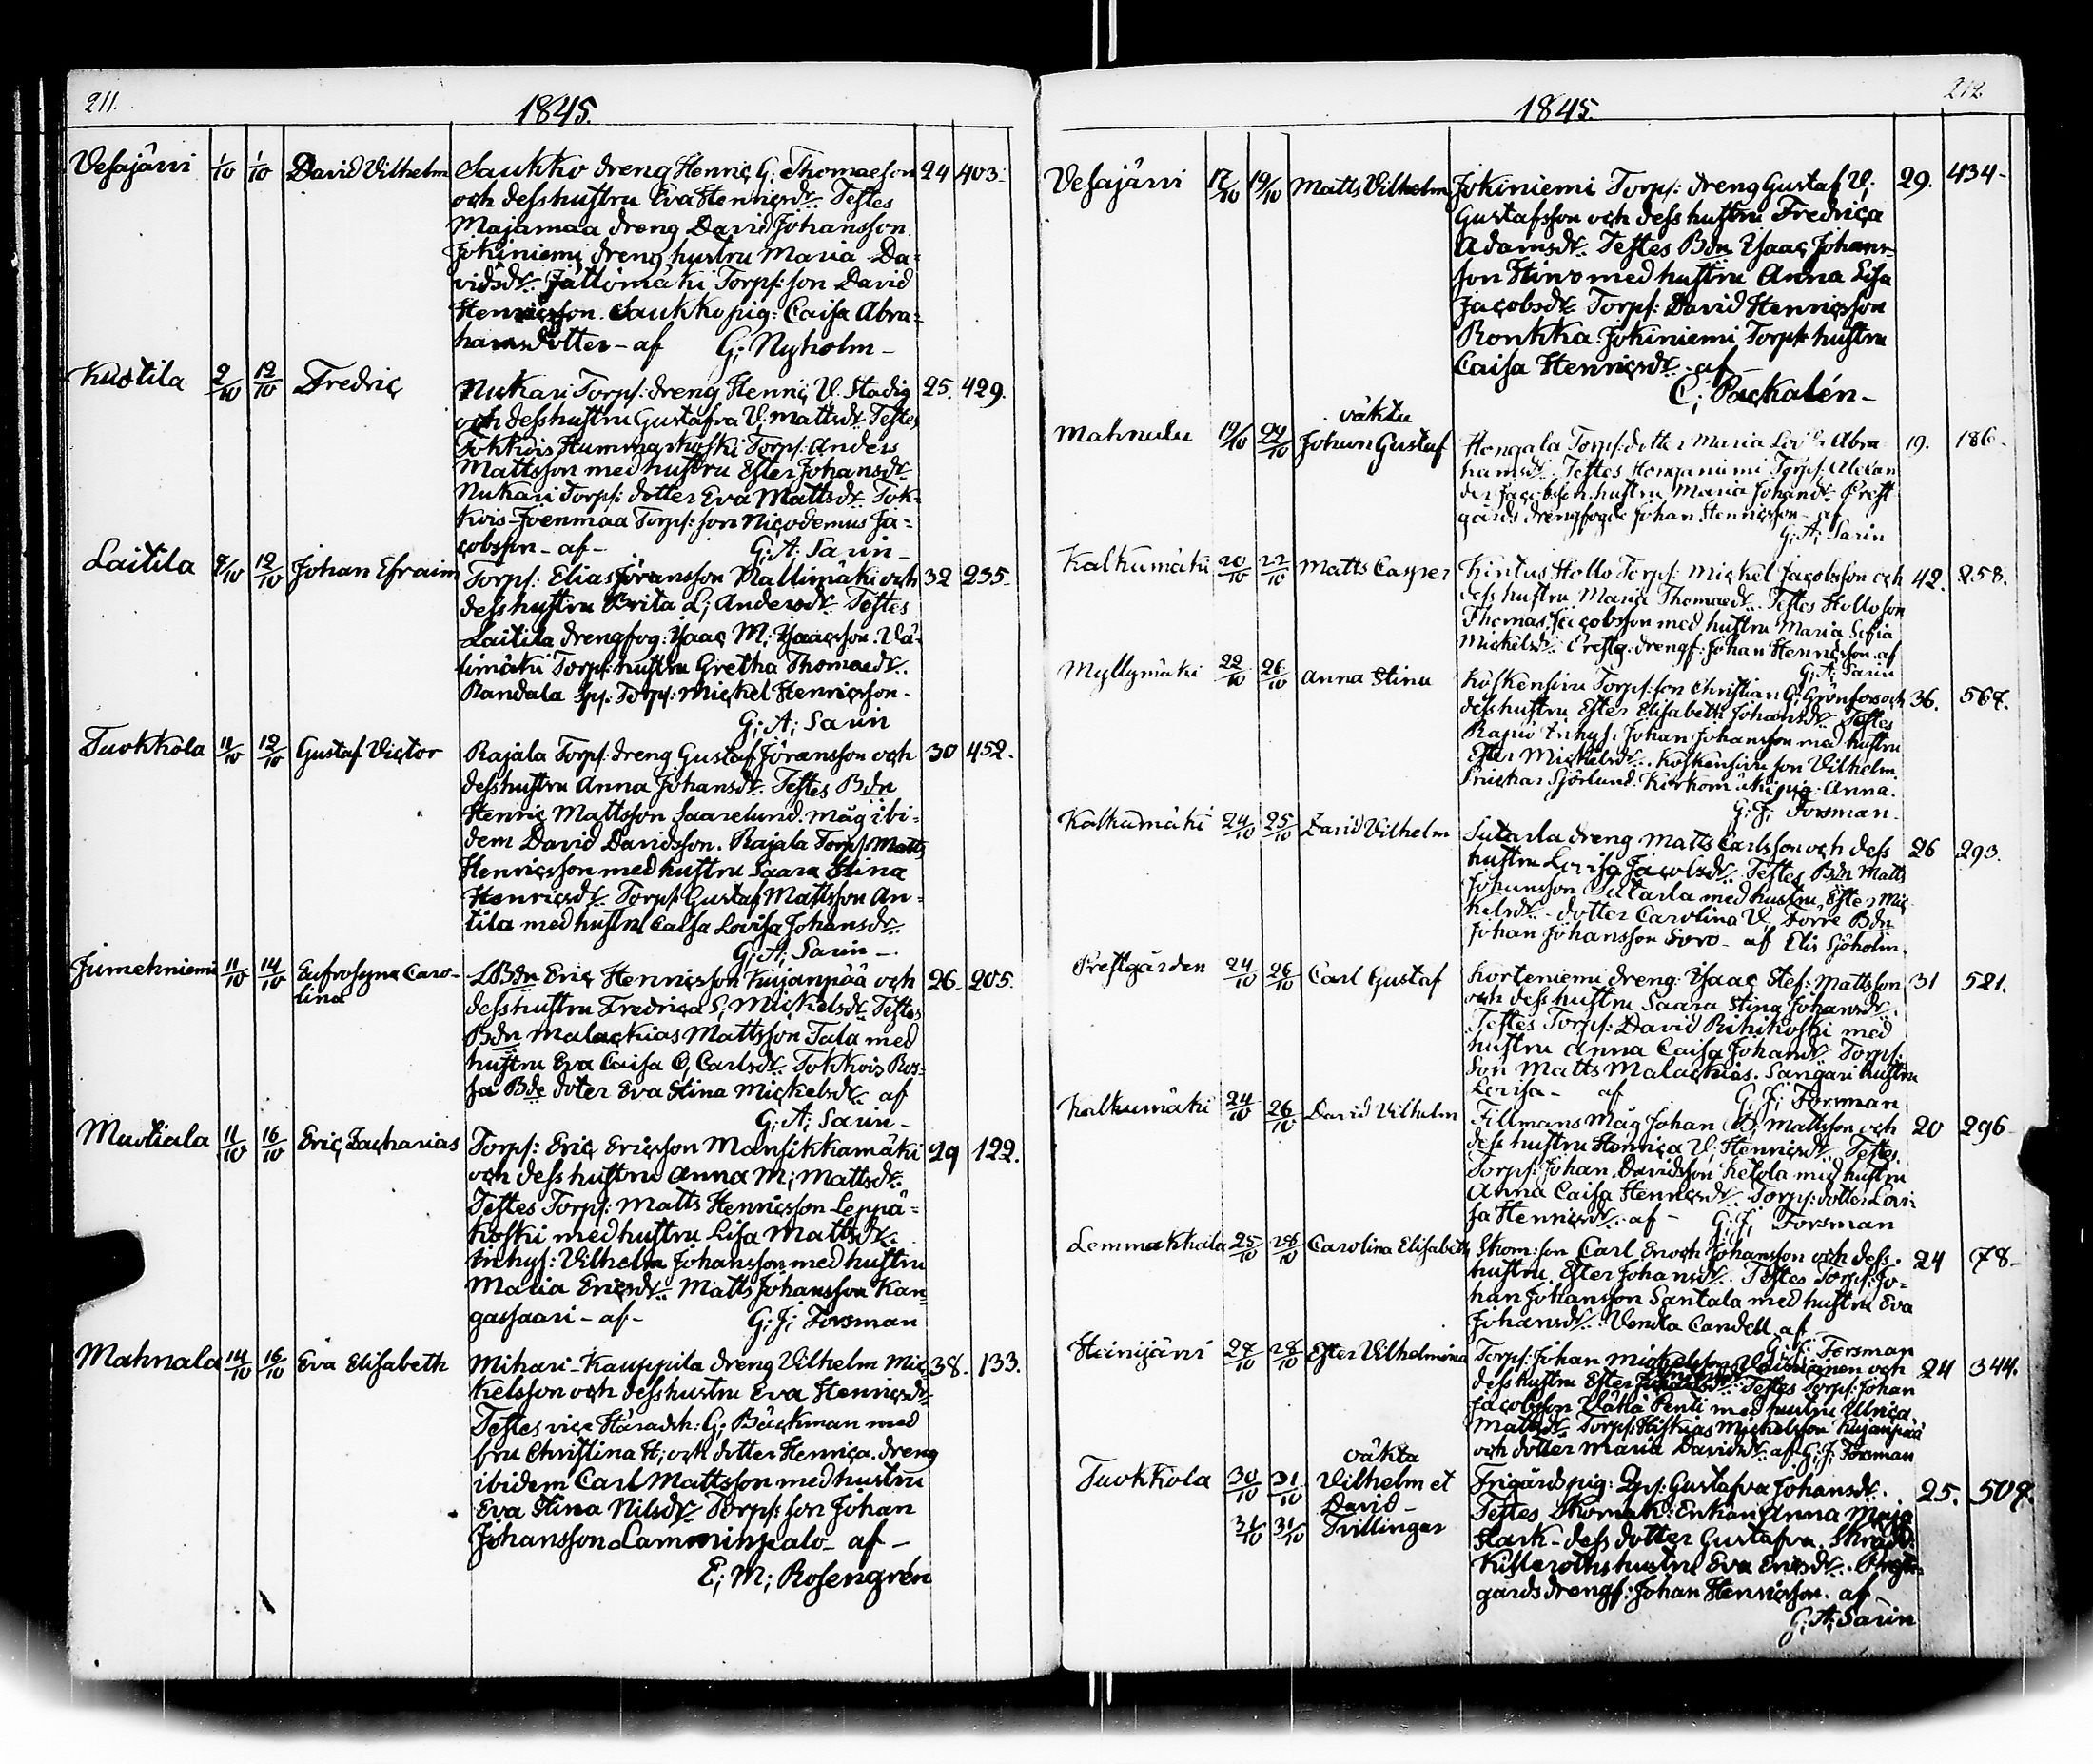 211.
1845.
Vesajärvi 1/10 1/10 David Vilhelm Saukko dreng Henric G; Thomaeson 24 403.
och desshustru Eva Henricsdr. Testes
Majamaa dreng David Johansson.
Jokiniemi dreng hustru Maria Da=
vidsdr. Jällömäki Torps: son David
Henricsson. Saukko pig: Caisa Abra=
hamsdotter - af G; Nyholm -
Kustila 2/10 12/10 Fredric Nukari Torps: dreng Henric V. Stadig 25. 429.
och desshustru Gustafva V; Mattsdr. Testes
Tokkois Hummaskoski Torps: Anders
Mattsson med hustru Ester Johansdr.
Nukari Torps: dotter Eva Mattsdr. Tok=
kois-Joenmaa Torps: son Nicodemus Ja=
cobsson - af - G; A; Sarin -
Laitila 9/10 12/10 Johan Efraim Torps: Elias Jöransson Kallimäki och 32 235.
desshustru Brita L; Andersdr. Testes
Laitila drengfog: Isaac M; Isaacsson. Vä=
limäki Torps: hustru Gretha Thomaedr.
Randala Torps: Mickel Henricsson -
G; A; Sarin
Tuokkola 11/10 12/10 Gustaf Victor Rajala Torps: dreng Gustaf Jöransson och 30 452.
desshustru Anna Johansdr. Testes Bdn
Henric Mattsson Saarelund. måg ibi-
dem David Davidsson. Rajala Torps: Matts
Henricsson med hustru Saara Stina
Henricsdr. Torps: Gustaf Mattsson An=
tila med hustru Caisa Lovisa Johansdr.
G; A; Sarin -
Jumehniemi 11/10 14/10 Eufrosyna Caro- LBdn Eric Henricsson Kujanpää och 26. 205.
lina desshustru Fredrica S; Mickelsdr. Testes
Bdn Malackias Mattsson Tala med
hustru Eva Caisa C; Carlsdr. Tokkois Ros=
sa Bde doter Eva Stina Mickelsdr. af
G; A; Sarin -
Muotiala 11/10 16/10 Eric Zacharias Torps: Eric Ericsson Mansikkamäki 29 122.
och desshustru Anna M; Mattsdr.
Testes Torps: Matts Henricsson Leppä=
koski med hustru Lisa Mattsdr.
Inhys: Vilhelm Johansson med hustru
Maria Ericsdr. Matts Johansson Kan=
gassaari - af - G; J; Forsman
Mahnala 14/10 16/10 Eva Elisabeth Mihari-Kauppila dreng Vilhelm Mic= 38. 133.
kelsson och desshustru Eva Henricsdr.
Testes vice Häradsh: G; Bäckman med
fru Christina H; och dotter Henrica. dreng
ibidem Carl Mattsson med hustru
Eva Stina Nilsdr. Torps: son Johan
Johansson Lamminpalo - af -
E; M; Rosengrén
212.
1845.
Vesajärvi 17/10 19/10 Matts Vilhelm Jokiniemi Torps: dreng Gustaf V; 29. 434-
Gustafsson och dess hustru Fredrica
Adamsdr. Testes Bdn Isaac Johans-
son Hiivo med hustru Anna Lisa
Jacobsdr. Torps: David Henricsson
Ronkka. Jokiniemi Torps: hustru
Caisa Henricsdr. af -
C; Packalén -
oäkta
Mahnala 19/10 24/10 Johan Gustaf Hongala Torps: dotter Maria Lovisa Abra 19. 186-
hamsdr. Testes Honganiemi Torps: Alexan
der Jacobsson hustru Maria Johansdr. Prest
gårds drengfogde Johan Henricsson - af
G; A; Sarin
Kalkumäki 20/10 22/10 Matts Casper Kintus Hollo Torps: Mickel Jacobsson och 42. 258.
dess hustru Maria Thomaedr. Testes Hollo son
Thomas Jacobsson med hustru Maria Sofia
Mickelsdr. Prestg: drengf: Johan Henricsson. af
G; A; Sarin
Myllymäki 22/10 26/10 Anna Stina Koskensivu Torps: son Christian G; Grönfors och 36. 567.
desshustru Ester Elisabeth Johansdr. Testes
Rajnio Inhys: Johan Johansson med hustru
Ester Mickelsdr. Koskensivu son Vilhelm.
Snickar Sjörlund. Kirkomäki pig: Anna.
G; J; Forsman -
Kalkumäki 24/10 25/10 David Vilhelm Sutarla dreng Matts Carlsson och dess 26 293.
hustru Lovisa Jacobsdr. Testes Bdn Matts
Johansson Sutarla med hustru Ester Mic
kelsdr. - dotter Carolina V; Förre Bdn
Johan Johansson Soro - af Elis Sjöholm.
Prestgården 24/10 26/10 Carl Gustaf Korteniemi dreng. Isaac Stef: Mattsson 31 521.
och desshustru Saara Stina Johansdr.
Testes Torps: David Rihikoski med
hustru Anna Caisa Johansdr. Torps:
Son Matts Malackias. Sangari hustru
Lovisa - af G; J; Forsman
Kalkumäki 24/10 26/10 David Vilhelm Tillmans Måg Johan G; Mattsson och 20 296-
dess hustru Henrica V; Henricsdr. Testes
Torps: Johan Davidsson Ketola med hustru
Anna Caisa Henricsdr. Torps: dotter Lovi
sa Henricsdr. af - G; J; Forsman
Lemmakkala 25/10 28/10 Carolina Elisabeth Skom: son Carl Enoch Johansson och dess. 24 78-
hustru. Ester Johansdr. Testes Torps: Jo=
han Johansson Santala med hustru Eva
Johansdr. Vendla Candell. af
G; J; Forsman
Heinijärvi 27/10 28/10 Ester Vilhelmina Torps: Johan Mickelsson och 24 344.
desshustru Ester Testes Torps: Johan
Jacobsson Penti med hustru Ulrica
Mattsdr. Torps: Hiskias Mickelsson Kujanpää
och dotter Maria Davidsdr. af G; J; Forsman
oäkta
Tuokkola 30/10 31/10 Vilhelm et Frigårds pig: Qps: Gustafva Johansdr. 25. 507.
David - Testes Skomak: Enkan Anna Maja
31/10 31/10 Tvillingar Stark - dess dotter Gustafva. Skräd:
Killeroths hustru Eva Ericsdr. Prest=
gårds drengf: Johan Henricsson. af
G; A; Sarin